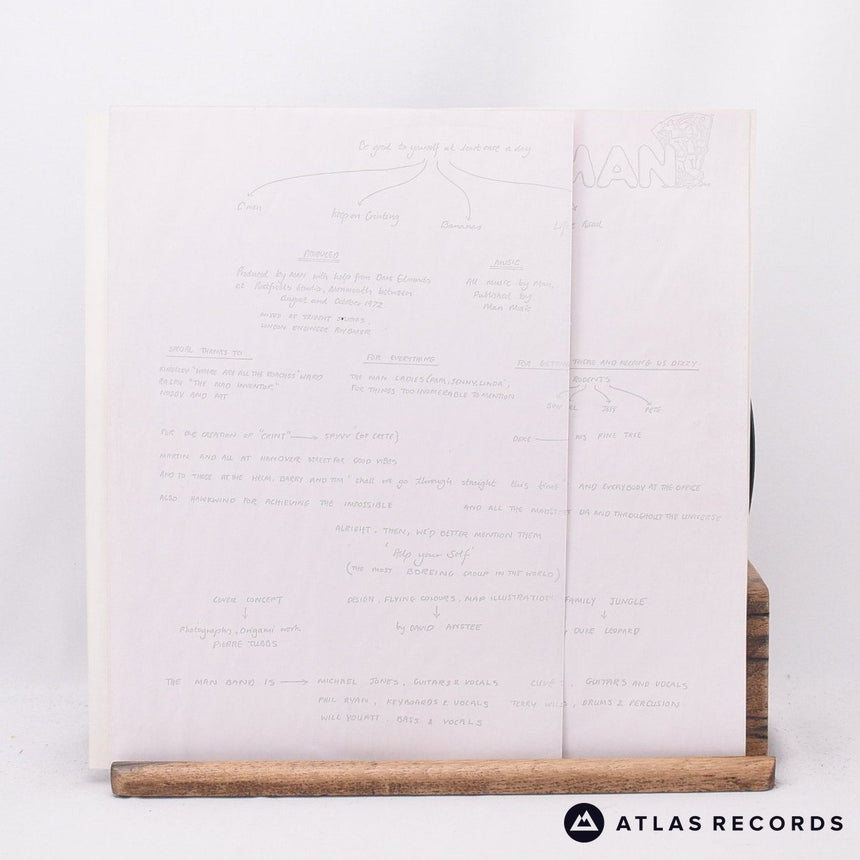 Be good to yourself at least once a day
MAN
C'mon
Keep on Crinting
Bananas
Life Road
PRODUCED
MUSIC
Produced by MAN with help from Dave Edmunds
at Rockfield Studio, Monmouth between
August and October 1972
MIXED AT TRIDENT STUDIOS,
LONDON ENGINEER
All music by Man,
Published by
Man Music
SPECIAL THANKS TO
"WHERE ARE ALL THE ROACHES" WARD
RALPH "THE MAD INVENTOR"
NODDY AND PAT
FOR EVERYTHING
THE MAN LADIES (PAM, JENNY, LINDA),
FOR THINGS TOO INUMERABLE TO MENTION
FOR GETTING THERE AND KEEPING US DIZZY
RODENTS
JEFF
PETE
FOR THE CREATION OF "CRINT" → SPYVV (OF CRETE)
DEKE MS PINE TREE
MARTIN AND ALL AT HANOVER STREET FOR GOOD VIBES
AND TO "THOSE AT THE HELM, BARRY AND TIM" 'shall we go through straight this time' AND EVERYBODY AT THE OFFICE
ALSO HAWKWIND FOR ACHIEVING THE IMPOSSIBLE
AND ALL THE AND THROUGHOUT THE UNIVERSE
ALRIGHT, THEN, WE'D BETTER MENTION THEM
'Help your Self'
(THE MOST BOREING GROUP IN THE WORLD)
COVER CONCEPT
Photography, Origami work
PIERRE TUBBS
DESIGN, FLYING COLOURS, MAP ILLUSTRATION
by DAVID ANSTEE
FAMILY JUNGLE
DUKE LEOPARD
THE MAN BAND IS → MICHAEL JONES, GUITARS & VOCALS
CLIVE , GUITARS AND VOCALS
PHIL RYAN, KEYBOARDS & VOCALS
TERRY , DRUMS & PERCUSION
WILL YOUATT, BASS & VOCALS
ATLAS RECORDS